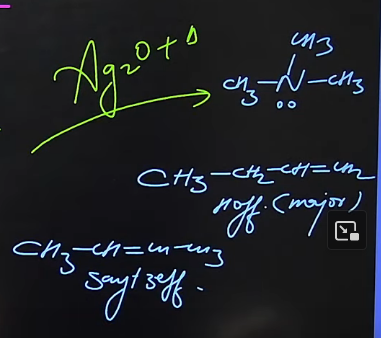 CH3
Ag2O + Δ
CH3—N—CH3
CH3—CH2—CH=CH2
Hoff. (major)
CH3—CH=CH—CH3
Saytzeff.